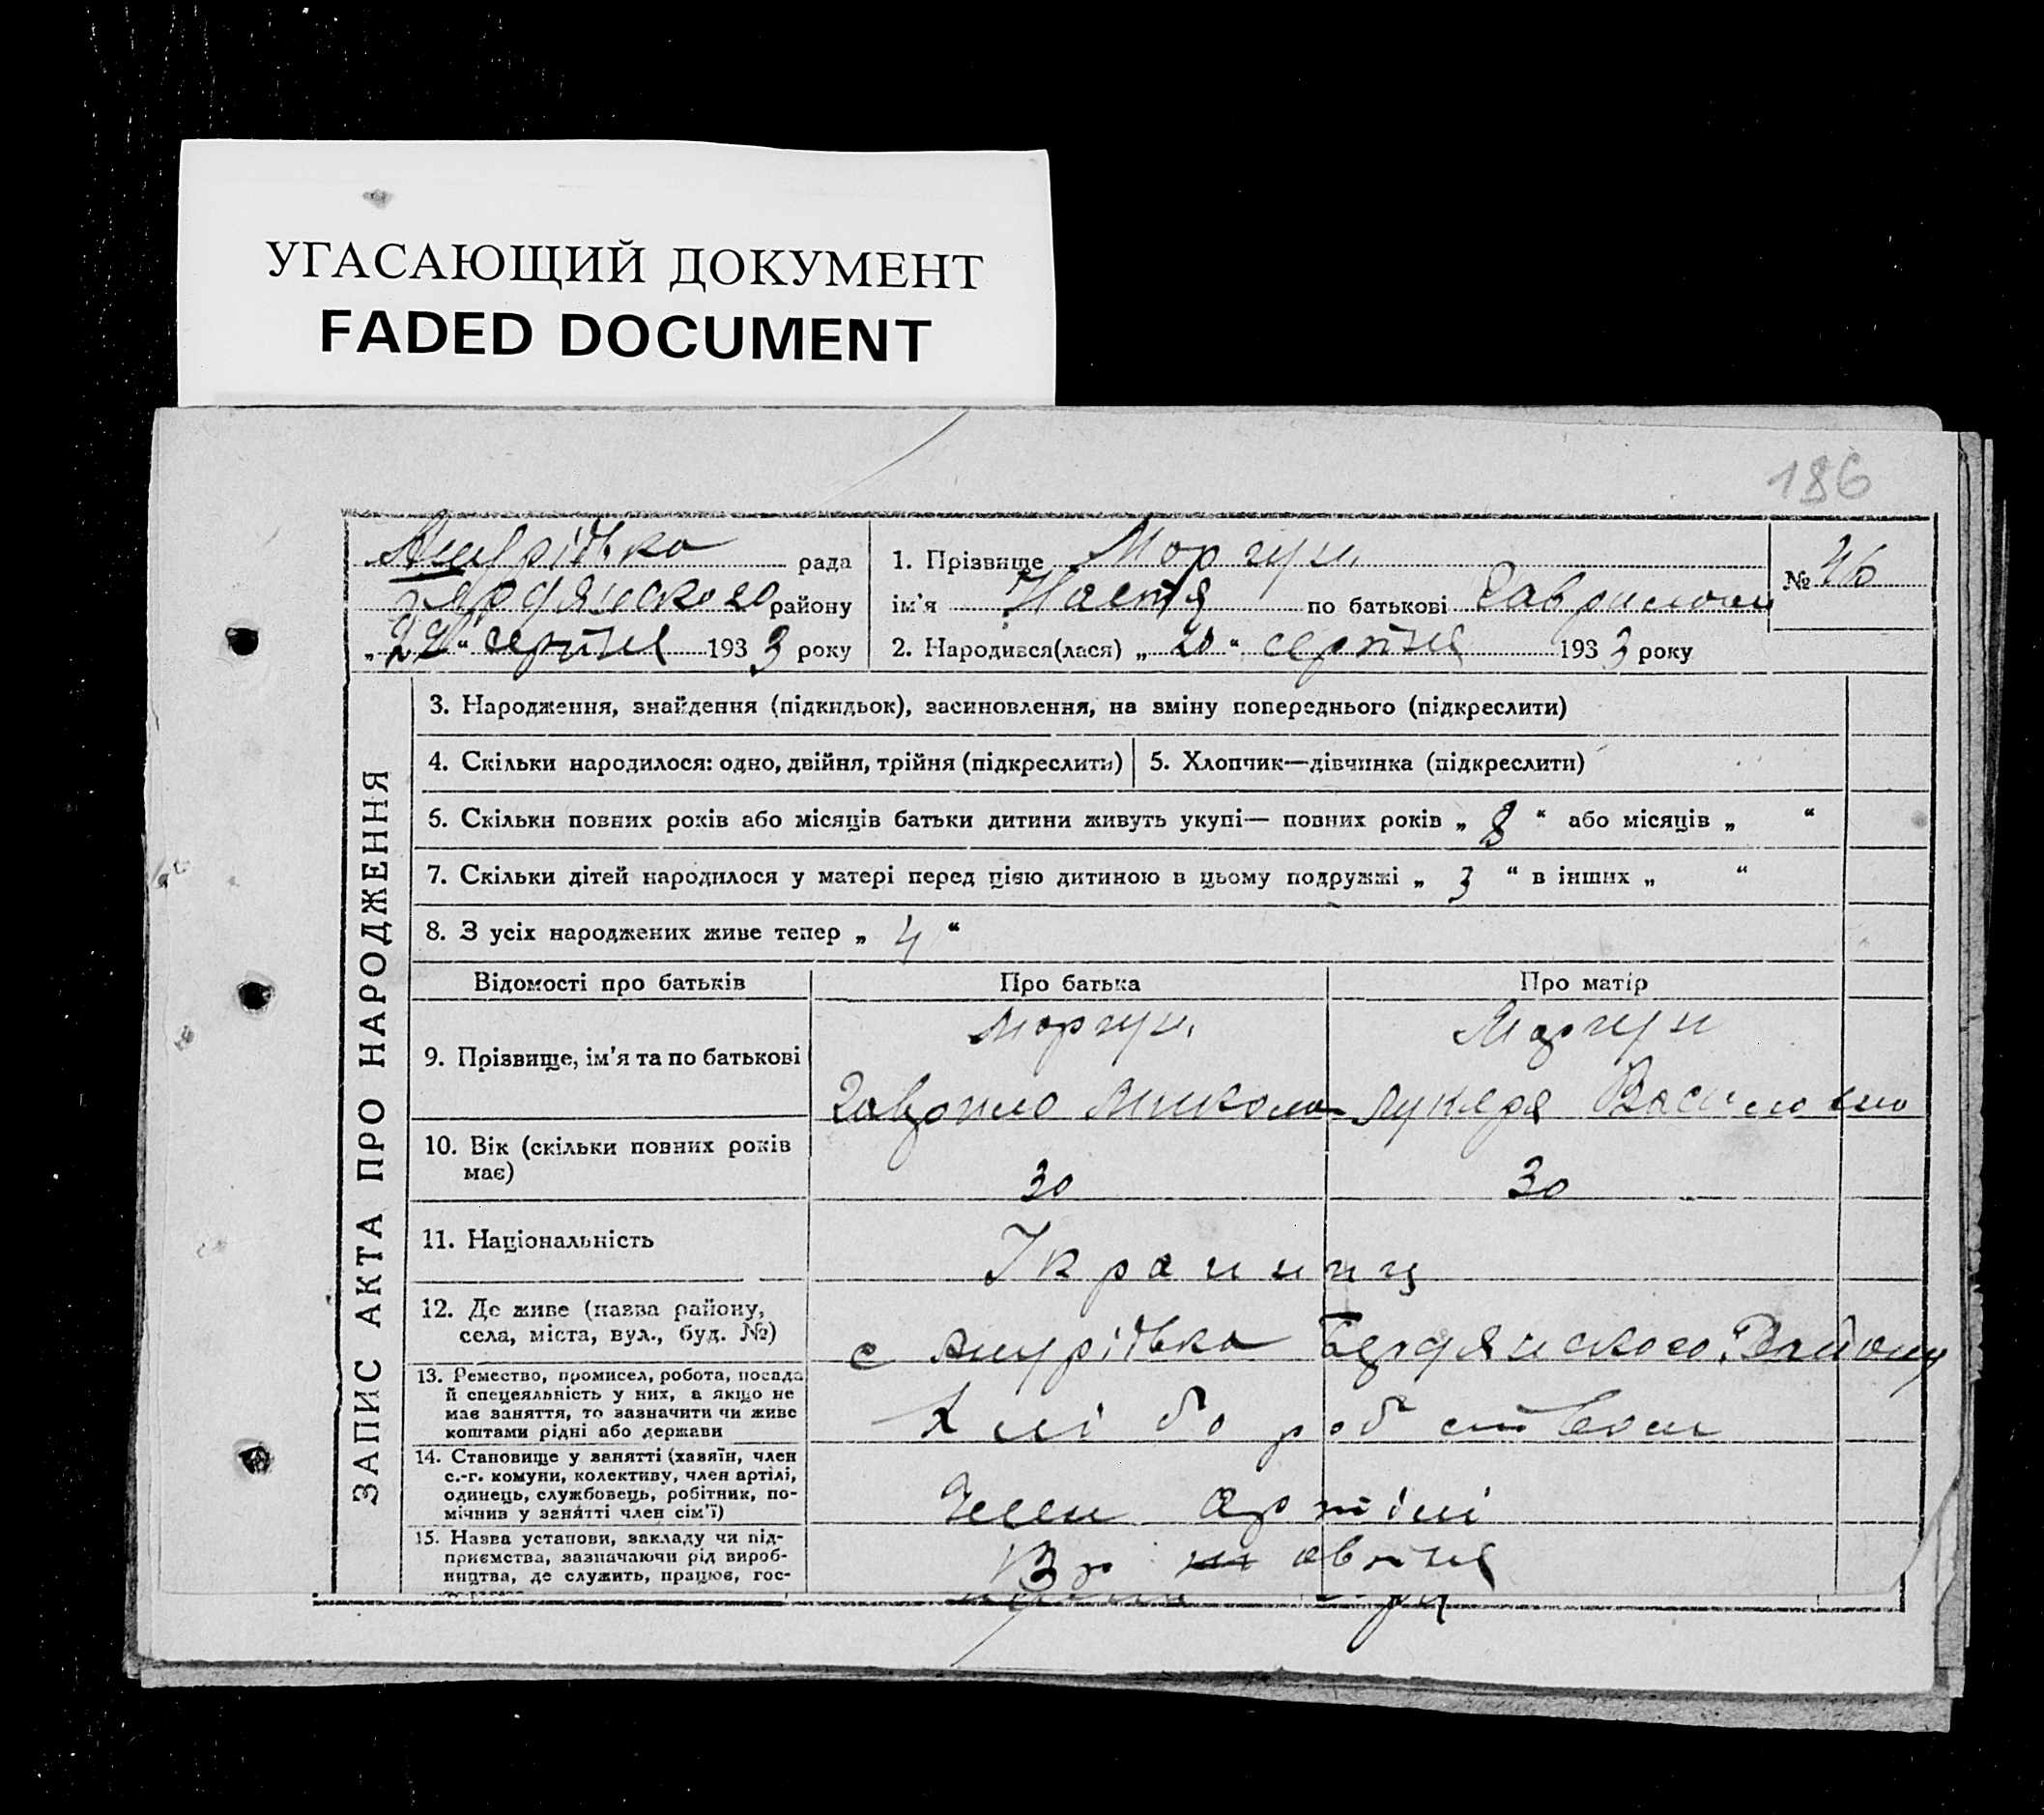 УГАСАЮЩИЙ ДОКУМЕНТ
FADED DOCUMENT
186
рада
Бердянського району
„22“ серпня 1933 року
1. Прізвище Моргун
ім’я Настя по батькові Гаврилови
№ 46
2. Народився(лася) „20“ серпня 1933 року
ЗАПИС АКТА ПРО НАРОДЖЕННЯ
3. Народження, знайдення (підкидьок), засиновлення, на зміну попереднього (підкреслити)
4. Скільки народилося: одно, двійня, трійня (підкреслити)
5. Хлопчик—дівчинка (підкреслити)
6. Скільки повних років або місяців батьки дитини живуть укупі— повних років „8“ або місяців „ “
7. Скільки дітей народилося у матері перед цією дитиною в цьому подружжі „3“ в інших „ “
8. З усіх народжених живе тепер „4“
Відомості про батьків
Про батька
Про матір
9. Прізвище, ім’я та по батькові
Моргун
Гаврило Микола
Моргун
Лукеря Василовно
10. Вік (скільки повних років
має)
30
30
11. Національність
Украинци
12. Де живе (назва району,
села, міста, вул., буд. №)
с Бердянського Району
13. Ремество, промисел, робота, посада
й спецеяльність у них, а якщо не
має заняття, то зазначити чи живе
коштами рідні або держави
Хліборобством
14. Становище у занятті (хазяїн, член
с.-г. комуни, колективу, член артілі,
одинець, службовець, робітник, по-
мічнив у занятті член сім’ї)
Член артілі
15. Назва установи, закладу чи під-
приємства, зазначаючи рід вироб-
ництва, де служить, працює, гос-